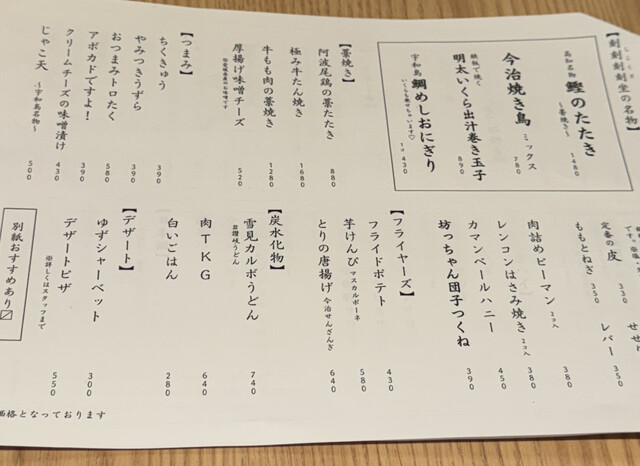 【刻刻刻刻堂の名物】
高知名物 鰹のたたき 〜藁焼き〜 1480
今治焼き鳥 ミックス 780
鉄板で焼く 明太いくら出汁巻き玉子 890
宇和島 鯛めしおにぎり 1コ 430
いくらも乗せちゃいます♡
【藁焼き】
阿波尾鶏の藁たたき 880
極み牛たん焼き 1680
牛もも肉の藁焼き 1280
厚揚げ味噌チーズ 520
【つまみ】
ちくきゅう 390
やみつきうずら 390
おつまみトロたく 580
アボカドですよ! 390
クリームチーズの味噌漬け 430
じゃこ天 〜宇和島名物〜 500
せせ
レバー 350
定番の皮 330
ももとねぎ 350
肉詰めピーマン 2コ入 380
レンコンはさみ焼き 2コ入 380
カマンベールハニー 450
坊っちゃん団子つくね 390
【フライヤーズ】
フライドポテト 430
芋けんぴ マスカルポーネ 580
とりの唐揚げ 今治せんざんぎ 640
【炭水化物】
雪見カルボうどん 740
※讃岐うどん
肉TKG 640
白いごはん 280
【デザート】
ゆずシャーベット 300
デザートピザ 550
※詳しくはスタッフまで
別紙おすすめあり
価格となっております